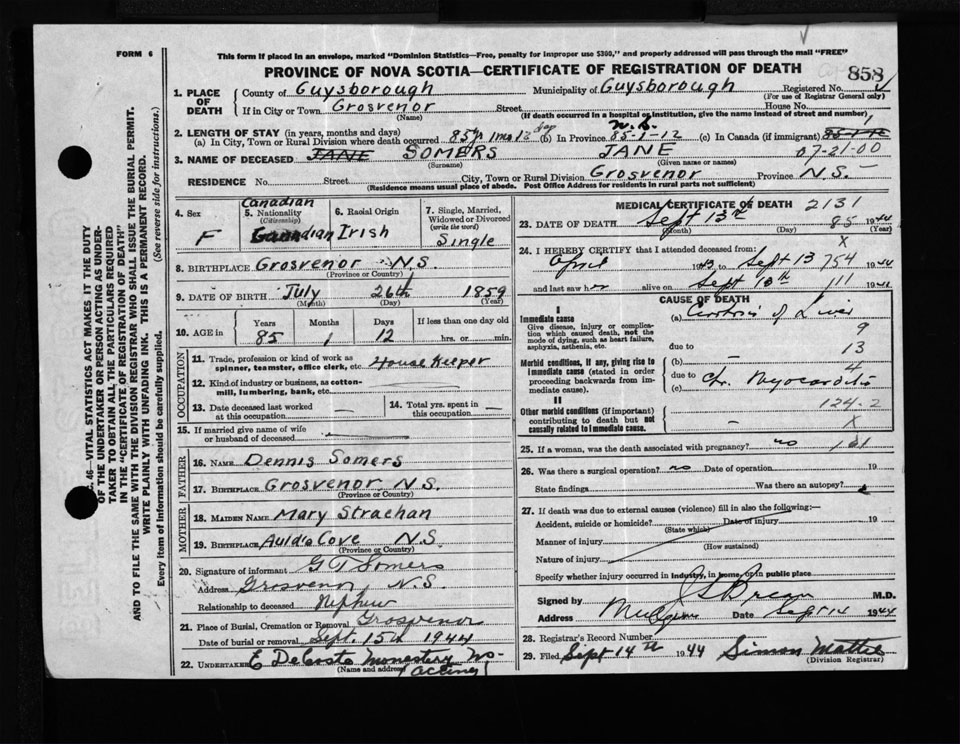 FORM 6
This form if placed in an envelope, marked "Dominion Statistics—Free, penalty for improper use $300," and properly addressed will pass through the mail "FREE"
PROVINCE OF NOVA SCOTIA—CERTIFICATE OF REGISTRATION OF DEATH
858
1. PLACE OF DEATH
County of Guysborough Municipality of Guysborough Registered No.
(For use of Registrar General only)
If in City or Town Grosvenor Street House No.
(Name) (If death occurred in a hospital or institution, give the name instead of street and number)
2. LENGTH OF STAY (in years, months and days)
(a) In City, Town or Rural Division where death occurred 85 yr 1 mo 12 day (b) In Province N.S. 85-1-12 (c) In Canada (if immigrant) 85-1-12
3. NAME OF DECEASED JANE SOMERS JANE 07-21-00
(Surname) (Given name or names)
RESIDENCE No. Street City, Town or Rural Division Grosvenor Province N.S.
(Residence means usual place of abode. Post Office Address for residents in rural parts not sufficient)
4. Sex F
5. Nationality (Citizenship) Canadian Canadian
6. Racial Origin Irish
7. Single, Married, Widowed or Divorced (write the word) Single
8. BIRTHPLACE Grosvenor N.S.
(Province or Country)
9. DATE OF BIRTH July 26th 1859
(Month) (Day) (Year)
10. AGE in Years Months Days If less than one day old
85 1 12 hrs. or min.
OCCUPATION
11. Trade, profession or kind of work as spinner, teamster, office clerk, etc. House Keeper
12. Kind of industry or business, as cotton-mill, lumbering, bank, etc.
13. Date deceased last worked at this occupation —
14. Total yrs. spent in this occupation —
15. If married give name of wife or husband of deceased
FATHER
16. NAME Dennis Somers
17. BIRTHPLACE Grosvenor N.S.
(Province or Country)
MOTHER
18. MAIDEN NAME Mary Strachan
19. BIRTHPLACE Auld's Cove N.S.
(Province or Country)
20. Signature of informant G T Somers
Address Grosvenor, N.S
Relationship to deceased Nephew
21. Place of Burial, Cremation or Removal Grosvenor
Date of burial or removal Sept. 15th 1944
22. UNDERTAKER E DeCoste Monastery
(Name and address) (acting)
MEDICAL CERTIFICATE OF DEATH 2131
23. DATE OF DEATH Sept 13th 85 1944
(Month) (Day) (Year)
24. I HEREBY CERTIFY that I attended deceased from:
X
April 1943 to Sept 13 754 1944
and last saw her alive on Sept 10th 111 1944
CAUSE OF DEATH
I
Immediate cause
Give disease, injury or complication which caused death, not the mode of dying, such as heart failure, asphyxia, asthenia, etc.
(a) Cirrhosis of Liver
9
due to 13
Morbid conditions, if any, giving rise to immediate cause (stated in order proceeding backwards from immediate cause).
(b) — 4
due to
(c) Chr. Myocarditis
II
Other morbid conditions (if important) contributing to death but not causally related to immediate cause.
124-2
— X
25. If a woman, was the death associated with pregnancy? no 101
26. Was there a surgical operation? no Date of operation 19
State findings Was there an autopsy?
27. If death was due to external causes (violence) fill in also the following:—
Accident, suicide or homicide? Date of injury 19
(State which)
Manner of injury
(How sustained)
Nature of injury
Specify whether injury occurred in industry, in home, or in public place
Signed by M.D.
Address Mulgrave Date Sept 14 1944
28. Registrar's Record Number
29. Filed Sept 14th 1944 Simon Mattie
(Division Registrar)
C. 46—VITAL STATISTICS ACT MAKES IT THE DUTY
OF THE UNDERTAKER OR PERSON ACTING AS UNDER-
TAKER TO OBTAIN ALL THE PARTICULARS REQUIRED
IN THE "CERTIFICATE OF REGISTRATION OF DEATH"
AND TO FILE THE SAME WITH THE DIVISION REGISTRAR WHO SHALL ISSUE THE BURIAL PERMIT.
WRITE PLAINLY WITH UNFADING INK. THIS IS A PERMANENT RECORD.
Every item of information should be carefully supplied. (See reverse side for instructions.)